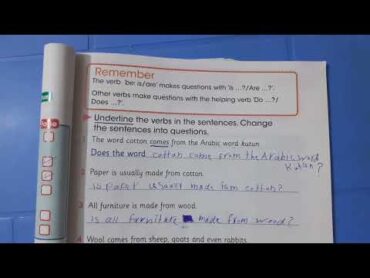 Remember
The verb 'be: is/are' makes questions with 'Is ...?/Are ...?'.
Other verbs make questions with the helping verb 'Do ...?/
Does ...?'.
Underline the verbs in the sentences. Change
the sentences into questions.
1 The word cotton comes from the Arabic word kutun.
Does the word cotton come from the Arabic word
kutun?
2 Paper is usually made from cotton.
is paper usually made from cotton?
3 All furniture is made from wood.
is all furniture made from wood?
4 Wool comes from sheep, goats and even rabbits.